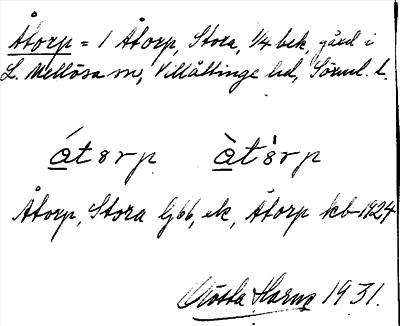 Åtorp = 1 Åtorp, Stora, 1/4 bek, gård i
L. Mellösa sn, Villåttinge hd, Sörml. l.
átorp àtòrp
Åtorp, Stora Gj 66, ek, Åtorp kb 1924
Gösta 1931.